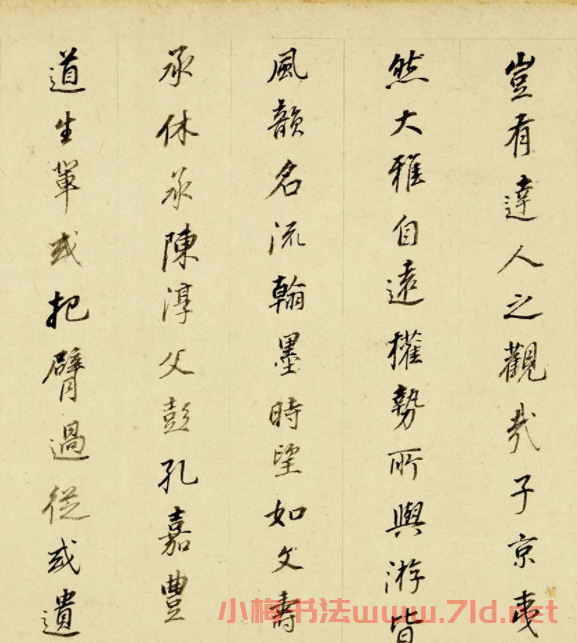 豈有達人之觀哉子京夷
然大雅自遠權勢所與游皆
風韻名流翰墨時望如文壽
承休承陳淳父彭孔嘉豐
道生輩或把臂過從或遺
小梅书法www.7ld.net